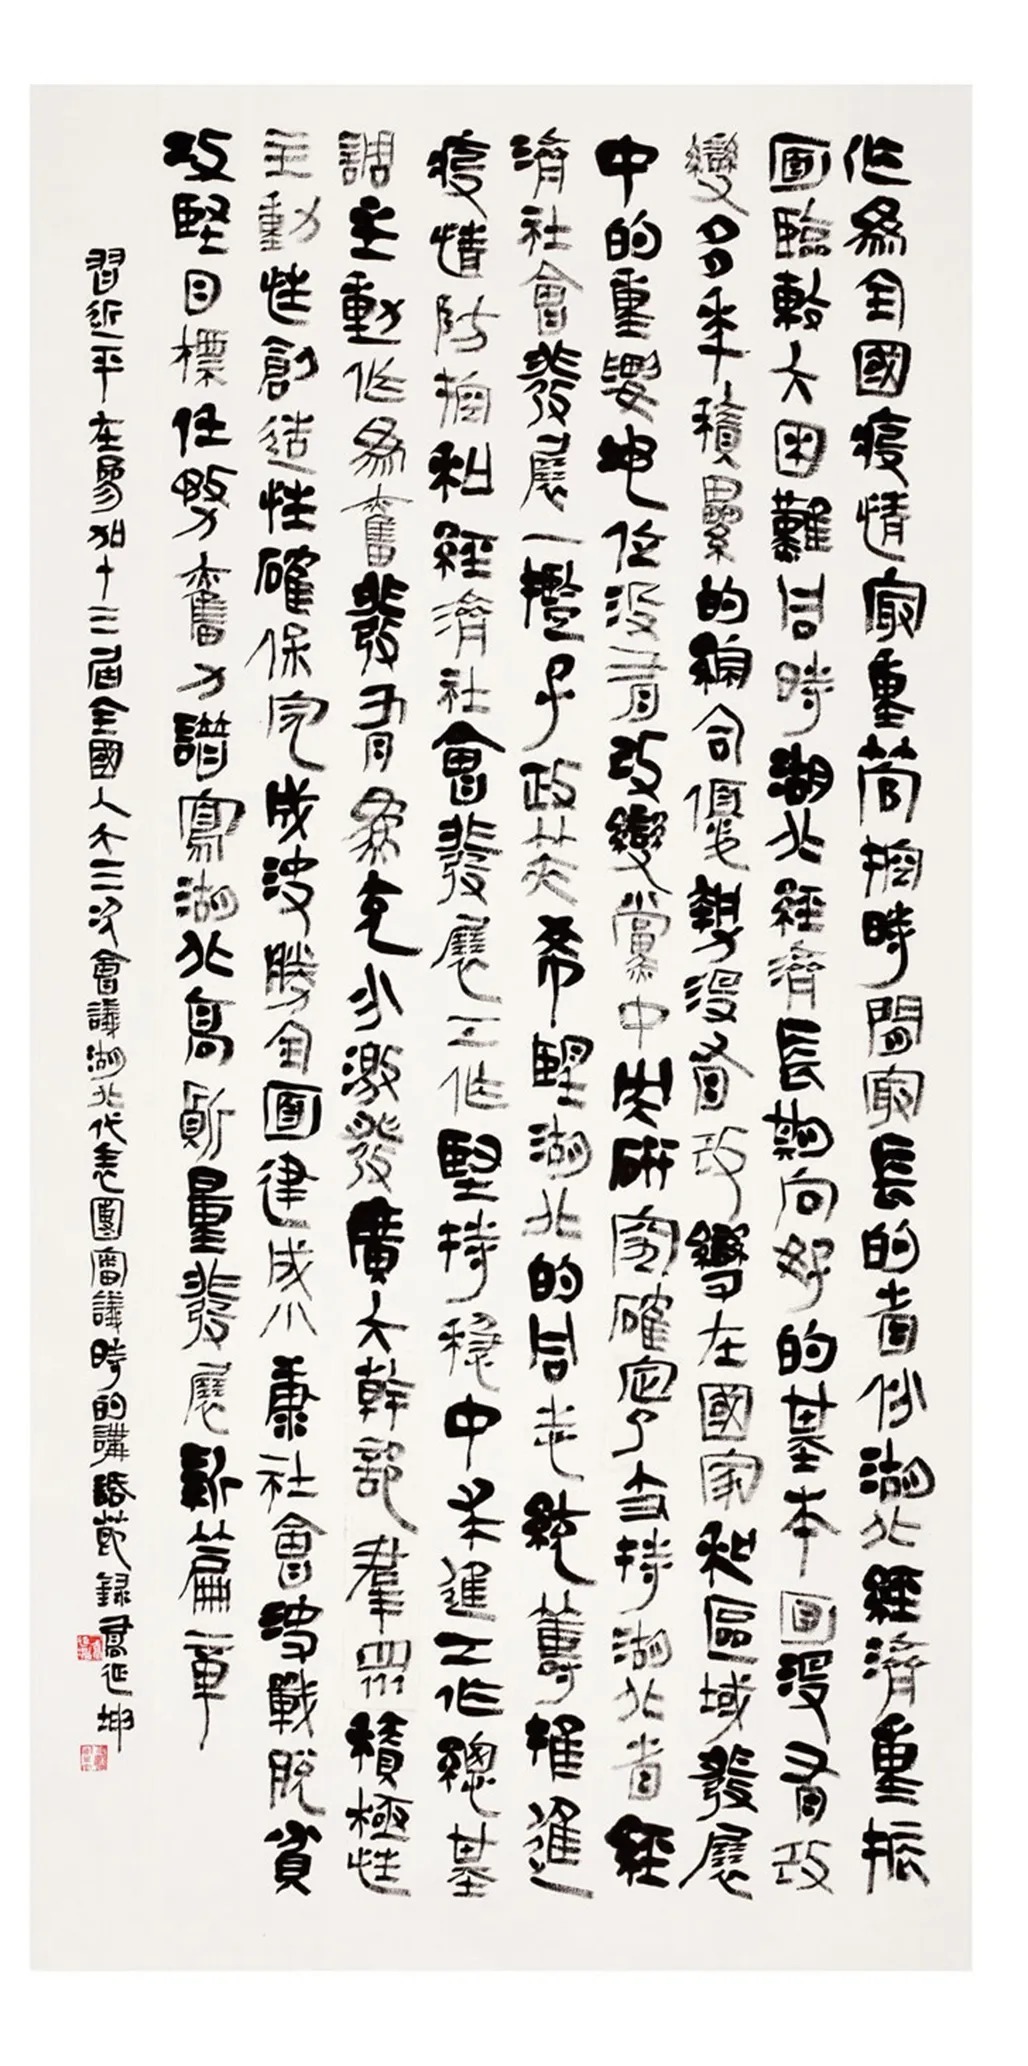 作為全國疫情最重管控時間最長的省份湖北經濟重振
面臨較大困難同時湖北經濟長期向好的基本面沒有改
變多年積累的綜合優勢沒有改變在國家和區域發展
中的重要地位沒有改變黨中央研究確定了支持湖北省經
濟社會發展一攬子政策希望湖北的同志統籌推進
疫情防控和經濟社會發展工作堅持穩中求進工作總基
調主動作為奮發有為充分激發廣大幹部羣眾積極性
主動性創造性確保完成決勝全面建成小康社會決戰脫貧
攻堅目標任務奮力譜寫湖北高質量發展新篇章
習近平在參加十三屆全國人大三次會議湖北代表團審議時的講話節錄高延坤